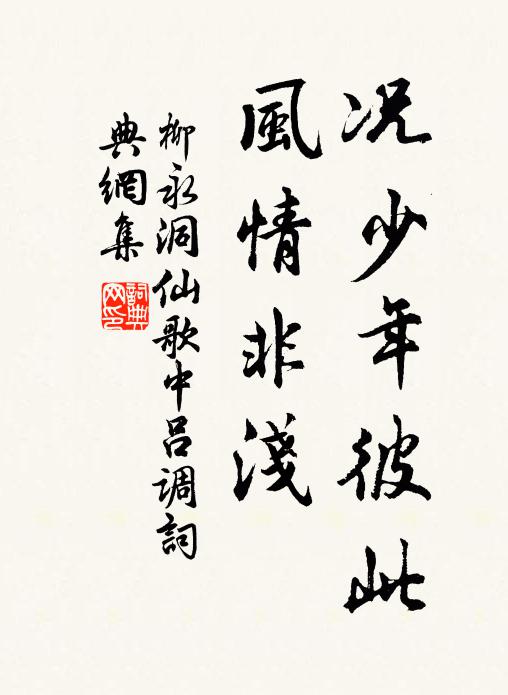 况少年彼此
風情非淺
柳永洞仙歌中吕調詞
典網集
詞典网印